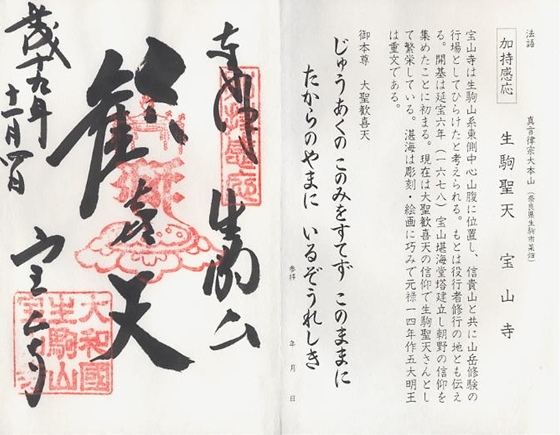 法語
加持感応
真言律宗大本山（奈良県生駒市菜畑）
生駒聖天　宝山寺
宝山寺は生駒山系東側中心山腹に位置し、信貴山と共に山岳修験の
行場としてひらけたと考えられる。もとは役行者修行の地とも伝え
る。開基は延宝六年（一六七八）宝山堪海堂塔建立し朝野の信仰を
集めたことに初まる。現在は大聖歓喜天の信仰で生駒聖天さんとし
て繁栄している。湛海は彫刻・絵画に巧みで元禄一四年作五大明王
は重文である。
御本尊　大聖歓喜天
じゅうあくの このみをすてず このままに
たからのやまに いるぞうれしき
参拝　年　月　日
奉拝　生駒山
歓喜天
宝山寺
十九年
大和國
生駒山